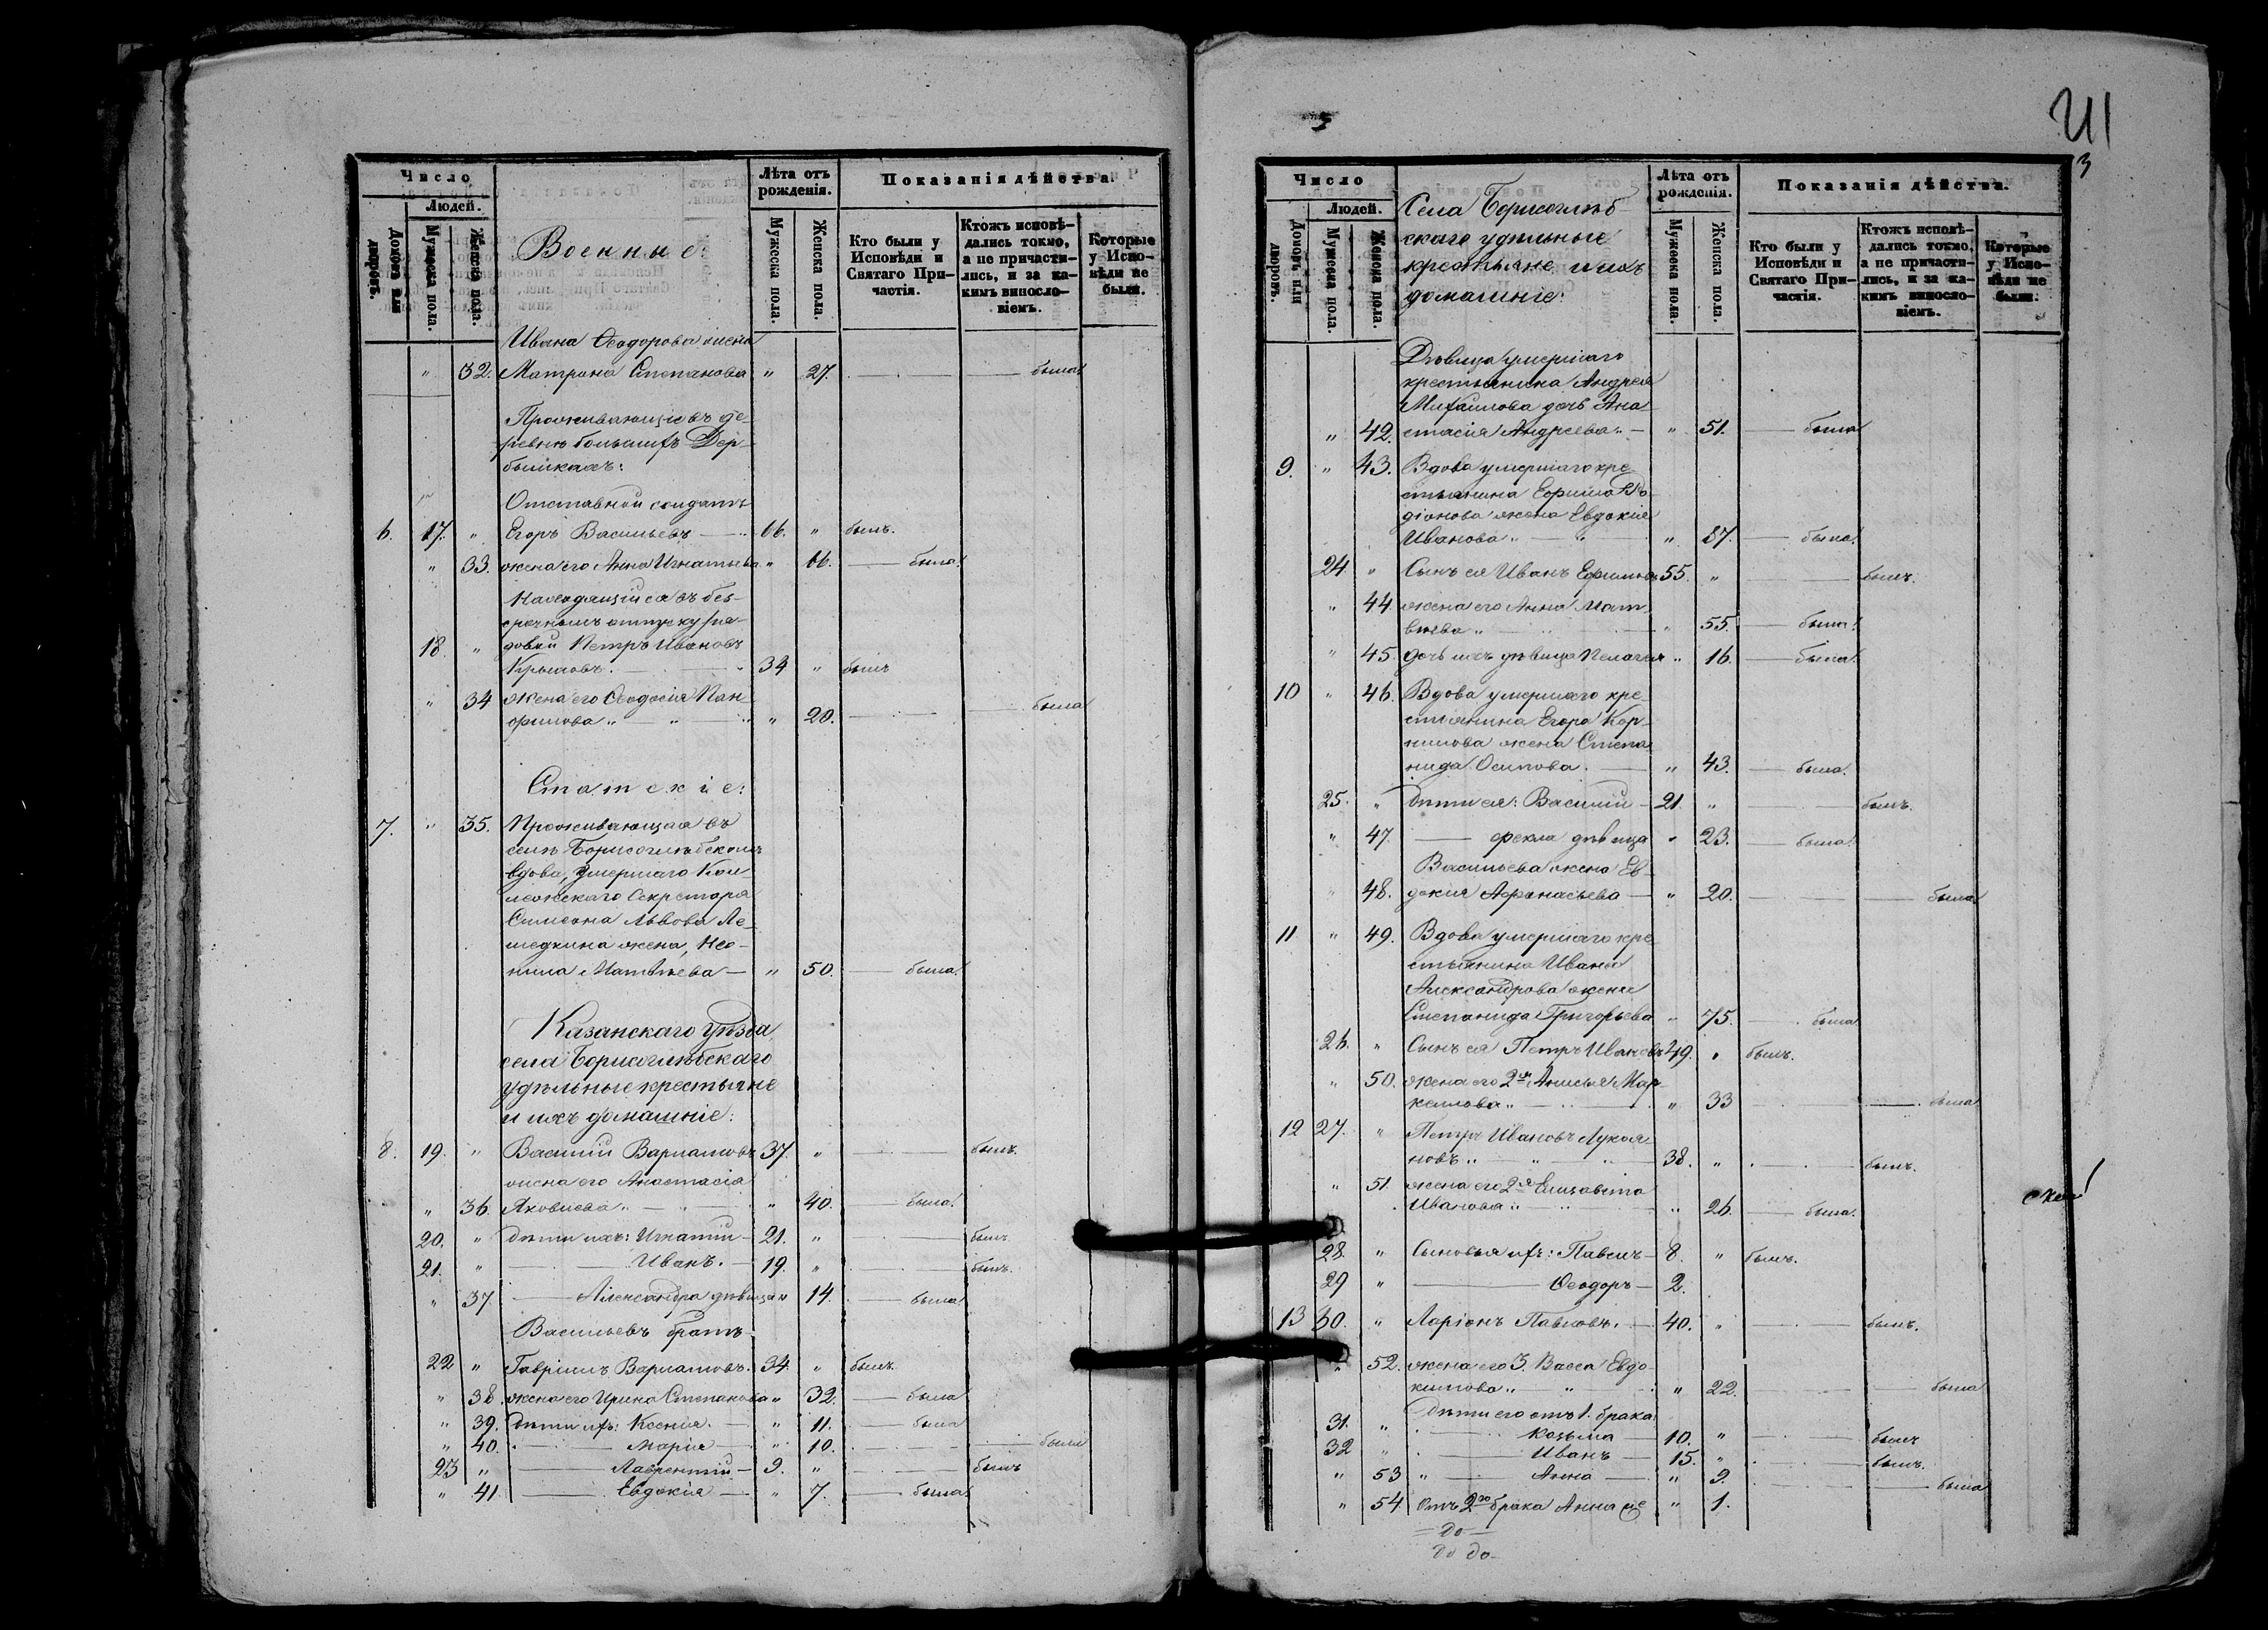 Число
Людей.
Домовъ или дворовъ.
Мужеска пола.
Женска пола.
Военные:
Лѣта отъ рожденія.
Мужеска пола.
Женска пола.
Показанія дѣйства.
Кто были у Исповѣди и Святаго Причастія.
Ктожъ исповѣдались токмо, а не причастились, и за какимъ винословіемъ.
Которые у Исповѣди не были.
Ивана Ѳеодорова жена
" 32. Матрона Степанова " 27. была
Проживающіе въ де-
ревнѣ большихъ Дер-
бышкахъ:
Отставной солдатъ
6. 17. " Егоръ Васильевъ 66. " былъ.
" 33. жена его Анна Игнатьева " 66. была.
Находящійся въ без-
срочномъ отпуску ря-
18. " довой Петръ Ивановъ
Крыловъ. 34 " былъ
" 34 жена его Ѳеодосія Пан-
филова " 20. была
Статскіе:
7. " 35. Проживающая въ
селѣ Борисоглѣбскомъ
вдова, умершаго Кол-
лежскаго Секретаря
Симеона Львова Ле-
жена, Нео-
нила Матвѣева " 50. была
Казанскаго Уѣзда,
села Борисоглѣбскаго
удѣльные крестьяне
и ихъ домашніе:
8. 19. " Василій Варламовъ 37. " былъ.
жена его Анастасія
" 36. Яковлева " 40. была.
20. " дѣти ихъ: Игнатій 21. " былъ
21. " Иванъ. 19. " былъ.
" 37 Александра дѣвица " 14. была
Васильевъ братъ
22 " Гавріилъ Варламовъ. 34. " былъ
" 38. жена его Ирина Степанова " 32. была
" 39. Дѣти ихъ: Ксенія. " 11. была
" 40. Марія " 10. была
23 " Лаврентій 9. " былъ
" 41. Евдокія " 7. была
3
211
3
Число
Людей.
Домовъ или дворовъ.
Мужеска пола.
Женска пола.
Села Борисоглѣб-
скаго удѣльные
крестьяне и ихъ
домашніе:
Лѣта отъ рожденія.
Мужеска пола.
Женска пола.
Показанія дѣйства.
Кто были у Исповѣди и Святаго Причастія.
Ктожъ исповѣдались токмо, а не причастились, и за какимъ винословіемъ.
Которые у Исповѣди не были.
Дѣвица умершаго
крестьянина Андрея
Михайлова дочь Ана-
" 42. стасія Андреева " 51. была
9. " 43. Вдова умершаго кре-
стьянина Ефима Ро-
діонова жена Евдокія
Иванова " 87. была.
24. " Сынъ ея Иванъ Ефимовъ 55. " былъ.
" 44 жена его Анна Мат-
вѣева " 55. была.
" 45. дочь ихъ дѣвица Пелагея " 16. была.
10 " 46. Вдова умершаго кре-
стьянина Егора Кор-
нилова жена Степа-
нида Осипова. " 43. была.
25. " дѣти ея: Василій 21. " былъ.
" 47. Фекла дѣвица " 23. была.
Васильева жена Ев-
" 48. докія Афанасьева " 20. была
11 " 49. Вдова умершаго кре-
стьянина Ивана
Александрова жена
Степанида Григорьева " 75. была
26. " Сынъ ея Петръ Ивановъ 49. " былъ.
" 50. жена его 2я Анисья Мар-
келова " 33 была
12 27. " Петръ Ивановъ Лукоя-
новъ 38. " былъ.
" 51. жена его 2я Елизавета
Иванова " 26. была.
28. " Сыновья ихъ: Павелъ 8. " былъ.
29 " Ѳеодоръ 2.
13 30. " Ларіонъ Павловъ. 40. " былъ.
" 52. жена его 3. Васса Евдо-
кимова " 22. была
дѣти его отъ 1. брака
31. " Козьма 10. " былъ
32 " Иванъ 15. " былъ.
" 53 " Анна " 9. была
" 54 отъ 2го брака Анна же " 1.